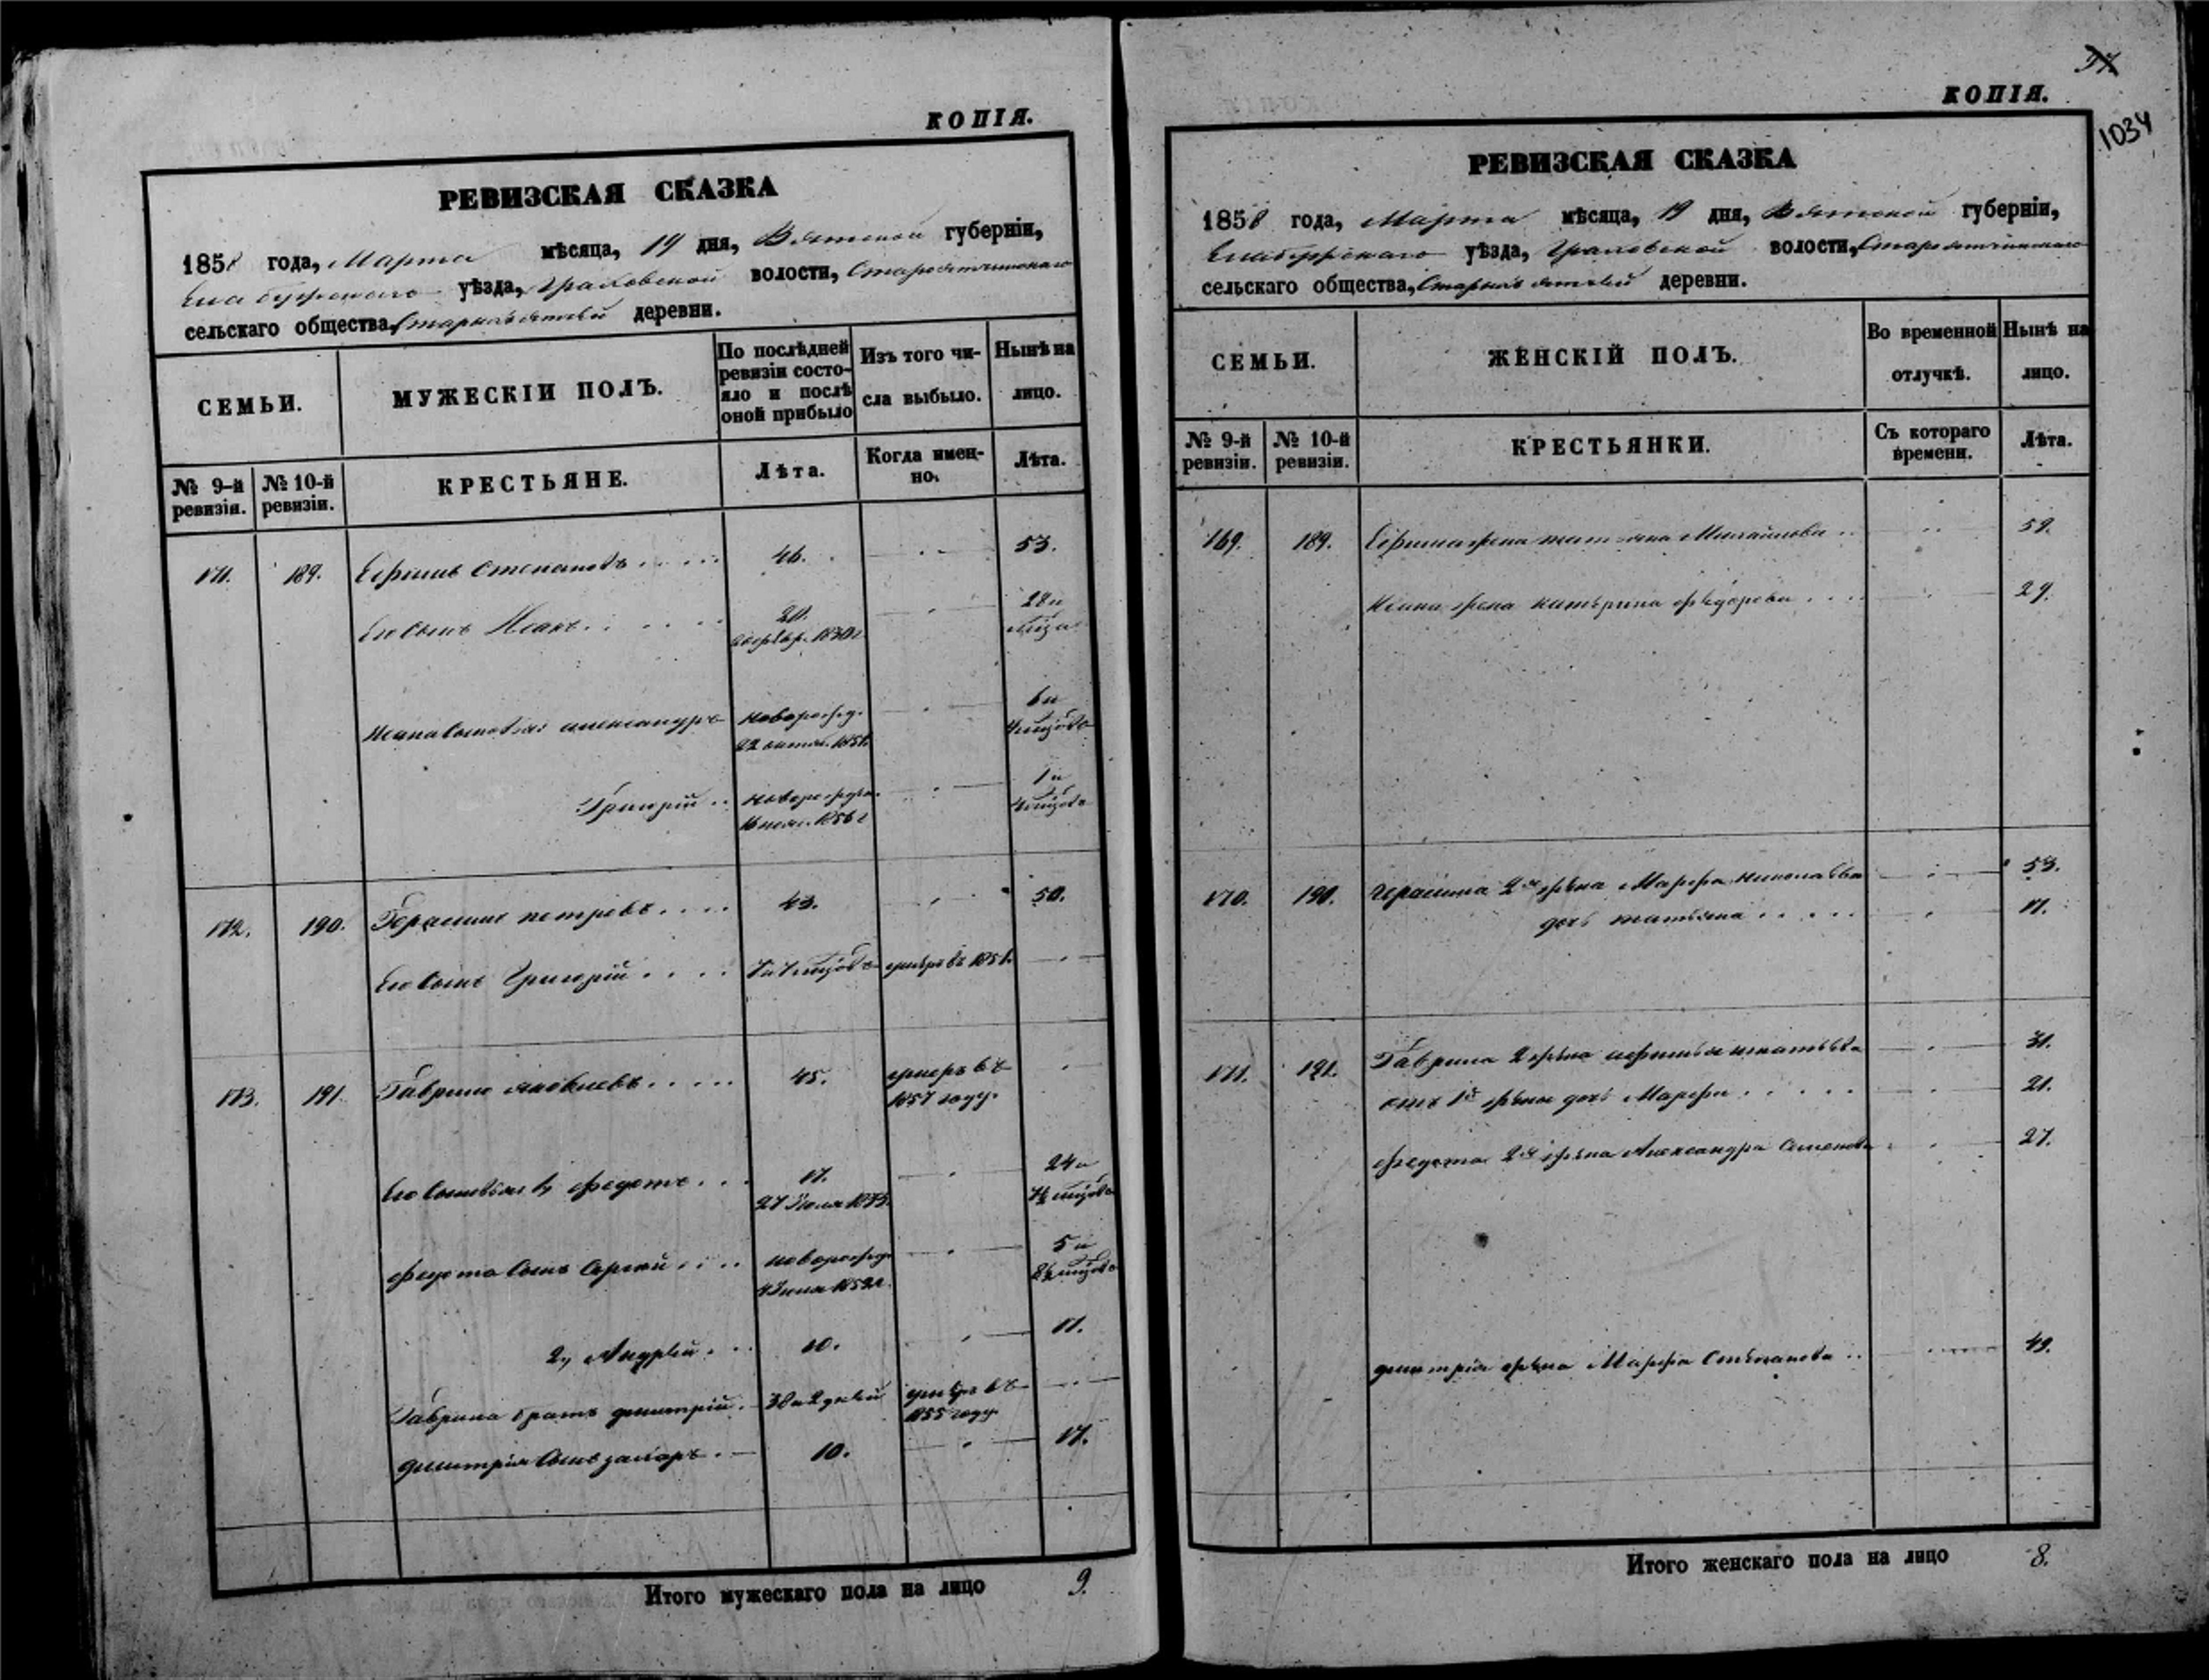 КОПІЯ.
РЕВИЗСКАЯ СКАЗКА
1858 года, Марта мѣсяца, 19 дня, Вятской губерніи,
Елабужскаго уѣзда, Граховской волости,
сельскаго общества, деревни.
СЕМЬИ.
МУЖЕСКІЙ ПОЛЪ.
По послѣдней ревизіи состояло и послѣ оной прибыло
Изъ того числа выбыло.
Нынѣ на лицо.
№ 9-й ревизіи.
№ 10-й ревизіи.
КРЕСТЬЯНЕ.
Лѣта.
Когда именно.
Лѣта.
171. 189. Ефимъ Степановъ 46. 53.
Его сынъ Исакъ 20. 28 и
Исака сыновья Александръ новорожд. 6 и
22 октяб. 1851. 4 мцовъ
Григорій новорожд. 1 и
1856 г 4 мцовъ
172. 190. Герасимъ Петровъ 43. 50.
Его сынъ Григорій умеръ въ 1851.
173. 191. Гаврило Яковлевъ 45. умеръ въ
1857 году.
Его сыновья 1, Федотъ 17. 24 и
7½ мцовъ
Федота сынъ Сергѣй новорожд. 5 и
8½ мцовъ
2, Андрей 10. 17.
Гаврила братъ Дмитрій 38 и 2 дней умеръ въ
1855 году
Дмитрія сынъ Захаръ 10. 17.
Итого мужескаго пола на лицо 9.
КОПІЯ.
1034
РЕВИЗСКАЯ СКАЗКА
1858 года, Марта мѣсяца, 19 дня, Вятской губерніи,
Елабужскаго уѣзда, Граховской волости,
сельскаго общества, деревни.
СЕМЬИ.
ЖЕНСКІЙ ПОЛЪ.
Во временной отлучкѣ.
Нынѣ на лицо.
№ 9-й ревизіи.
№ 10-й ревизіи.
КРЕСТЬЯНКИ.
Съ котораго времени.
Лѣта.
169. 189. Ефима жена Татьяна Михайлова 59.
Исака жена Катерина Федорова 29.
170. 190. Герасима 2я жена Марфа Николаева 53.
дочь Татьяна 17.
171. 191. Гаврила 2 жена Афимья Игнатьева 31.
отъ 1й жены дочь Марфа 21.
Федота 2я жена Александра Семенова 27.
Дмитрія жена Марфа Степанова 49.
Итого женскаго пола на лицо 8.